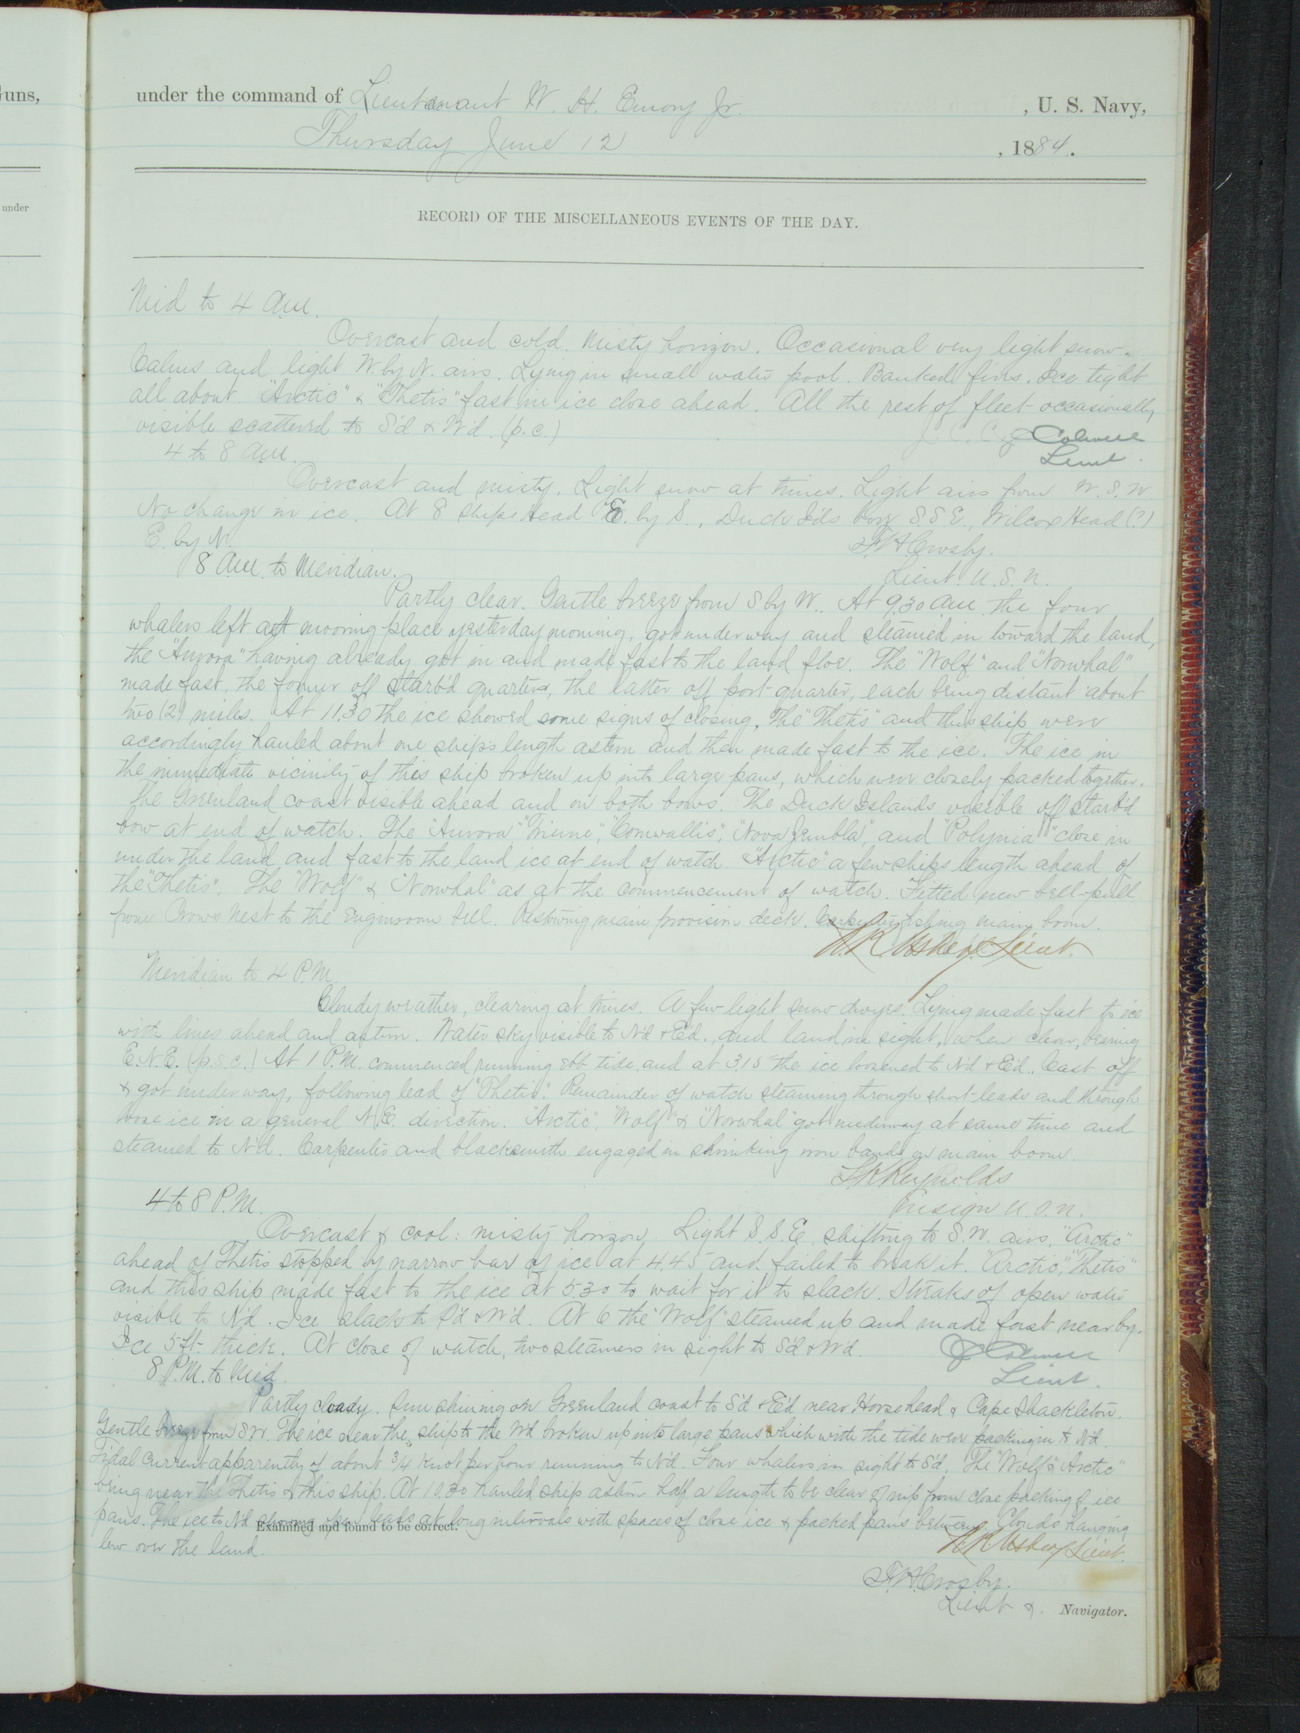 Guns,
under the command of Lieutenant W. H. Emory Jr. , U. S. Navy,
Thursday June 12 , 1884.
under
RECORD OF THE MISCELLANEOUS EVENTS OF THE DAY.
Mid to 4 a.m.
Overcast and cold. Misty horizon. Occasional very light snow.
Calms and light W. by N. airs. Lying in small water pool. Banked fires. Ice tight
all about. "Arctic" & "Thetis" fast in ice close ahead. All the rest of fleet occasionally
visible scattered to S'd & W'd. (p.c.)
J. C. Colwell
Lieut.
4 to 8 a.m.
Overcast and misty. Light snow at times. Light airs from W.S.W.
No change in ice. At 8 ships head E. by S., Duck Ids bore S.S.E., Wilcox Head (?)
E. by N.
F. H. Crosby.
Lieut. U.S.N.
8 a.m. to Meridian.
Partly clear. Gentle breeze from S. by W. At 9.30 a.m. the four
whalers left at mooring place yesterday morning, got underway and steamed in toward the land,
the "Aurora" having already got in and made fast to the land floe. The "Wolf" and "Norwhal"
made fast, the former off starb'd quarter, the latter off port-quarter, each being distant about
two (2) miles. At 11.30 the ice showed some signs of closing. The "Thetis" and this ship were
accordingly hauled about one ships length astern and then made fast to the ice. The ice in
the immediate vicinity of this ship broken up into large pans, which were closely packed together.
The Greenland coast visible ahead and on both bows. The Duck Islands visible off starb'd
bow at end of watch. The "Aurora," "Triune," "Cornwallis", "Nova Zembla", and "Polynia" close in
under the land and fast to the land ice at end of watch. "Arctic" a few ships length ahead of
the "Thetis". The "Wolf" & "Norwhal" as at the commencement of watch. Fitted new bell-pull
from Crows Nest to the Engineroom bell. Restowing main provision deck. Carpenter fishing main boom.
N. R. Usher Lieut.
Meridian to 4 P.M.
Cloudy weather, clearing at times. A few light snow Lying made fast to ice
with lines ahead and astern. Water sky visible to N'd & E'd, and land in sight, when clear, bearing
E.N.E. (p.s.c.) At 1 P.M. commenced running ebb tide, and at 3.15 the ice loosened to N'd & E'd. Cast off
& got underway, following lead of "Thetis." Remainder of watch steaming through short leads and through
loose ice in a general N.E. direction. "Arctic", "Wolf" & "Norwhal" got underway at same time and
steamed to N'd. Carpenter and blacksmith engaged in shrinking iron bands on main boom
L. K. Reynolds
Ensign U.S.N.
4 to 8 P.M.
Overcast & cool: misty horizon. Light S.S.E. shifting to S.W. airs. "Arctic"
ahead of Thetis stopped by narrow bar of ice at 4.45 and failed to break it. "Arctic," "Thetis"
and this ship made fast to the ice at 5.30 to wait for it to slack. Streaks of open water
visible to N'd. Ice slack to S'd & W'd. At 6 the "Wolf" steamed up and made fast near by.
Ice 5 ft. thick. At close of watch, two steamers in sight to S'd & W'd.
J. C. Colwell
Lieut.
8 P.M. to Mid.
Partly cloudy. Sun shining on Greenland coast to S'd & E'd near Horsehead & Cape Shackleton.
Gentle breeze from SW. The ice near the ship to the W'd broken up into large pans which with the tide were packing in to N'd.
Tidal current apparently of about 3/4 knot per hour running to N'd. Four whalers in sight to S'd. The "Wolf" & "Arctic"
being near the Thetis & this ship. At 10.30 hauled ship astern half a length to be clear of nip from close packing of ice
pans. The ice to N'd leads at long intervals with spaces of close ice & packed pans between. Clouds hanging
low over the land.
N. R. Usher Lieut.
Examined and found to be correct.
F. H. Crosby.
Lieut & Navigator.